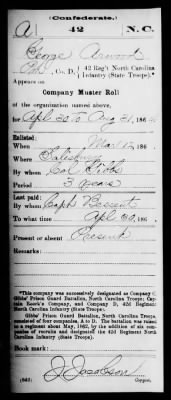 (Confederate.)
A 42 N.C.
George Arwood
Pvt, Co. D, 42 Reg't North Carolina Infantry (State Troops).*
Appears on
Company Muster Roll
of the organization named above,
for Apl 30 to Aug 31, 186
Enlisted:
When Mar 12, 186
Where Salisbury
By whom Col Gibbs
Period 3 years
Last paid:
By whom Capt Bessent
To what time Apl 30, 186
Present or absent Present
Remarks:
*This company was successively designated as Company
Gibbs' Prison Guard Battalion, North Carolina Troops; Cap-
tain Company, and Company D, 42d Regiment North
Carolina Infantry (State Troops).
Gibbs' Prison Guard Battalion, North Carolina Troops,
consisted of four companies, A to D. The battalion was raised
to a regiment about May, 1862, by the addition of six com-
panies of recruits and designated the 42d Regiment North
Carolina Infantry (State Troops).
Book mark:
J Jacobson
(642) Copyist.